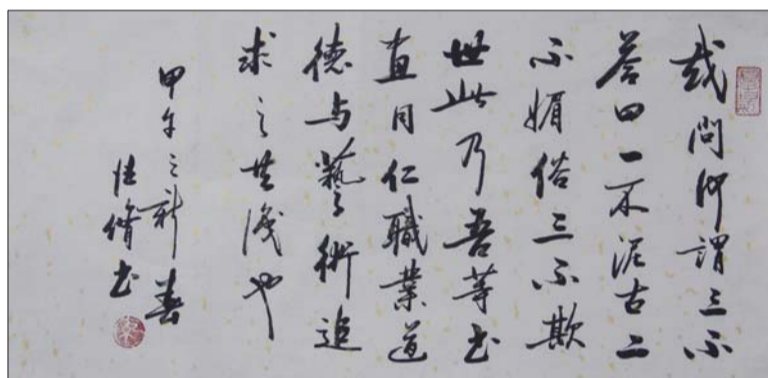 或問何謂三不
答曰一不泥古二
不媚俗三不欺
世此乃吾等书
畫同仁職業道
德与藝術追
求之共識也
甲午之新春
书